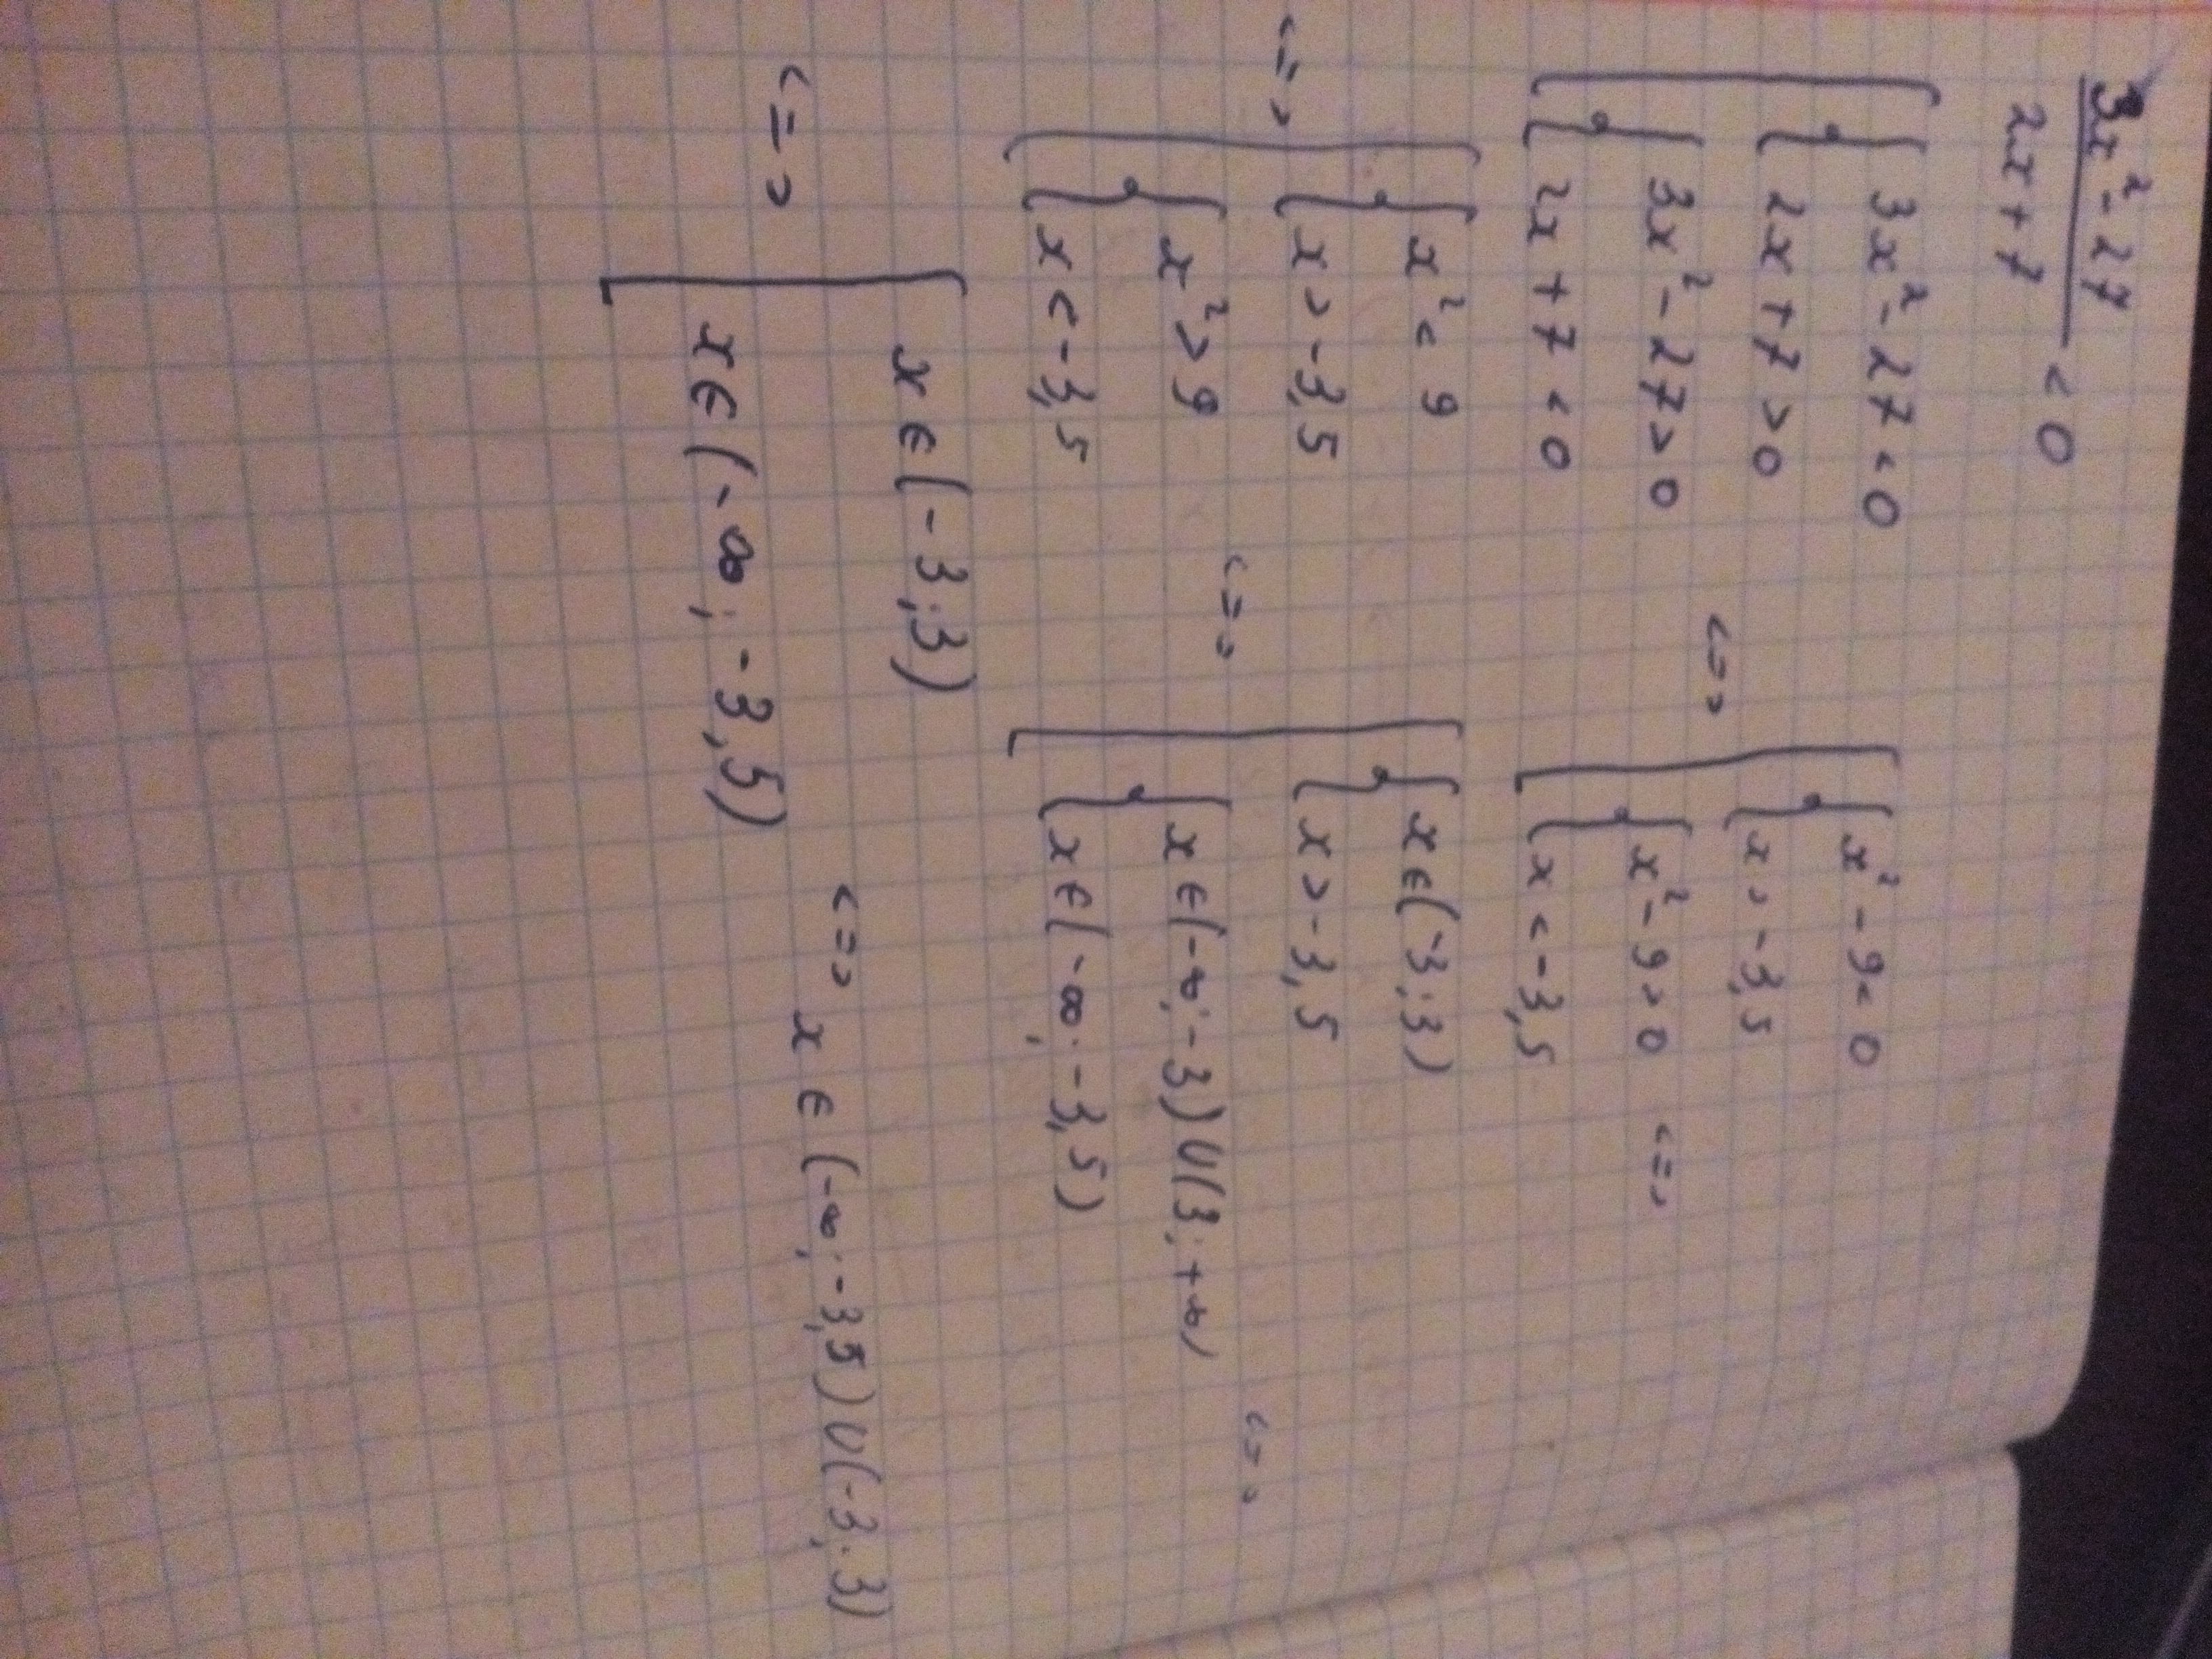 3x² - 27
2x + 7
< 0
{ 3x² - 27 < 0
{ 2x + 7 > 0
{ 3x² - 27 > 0
{ 2x + 7 < 0
<=>
{ x² - 9 < 0
{ x > -3,5
{ x² - 9 > 0
{ x < -3,5
<=>
<=>
{ x² < 9
{ x > -3,5
{ x² > 9
{ x < -3,5
<=>
{ x ∈ (-3; 3)
{ x > -3,5
{ x ∈ (-∞; -3) U (3; +∞)
{ x ∈ (-∞; -3,5)
<=>
<=>
[ x ∈ (-3; 3)
x ∈ (-∞; -3,5)
<=> x ∈ (-∞; -3,5) U (-3; 3)